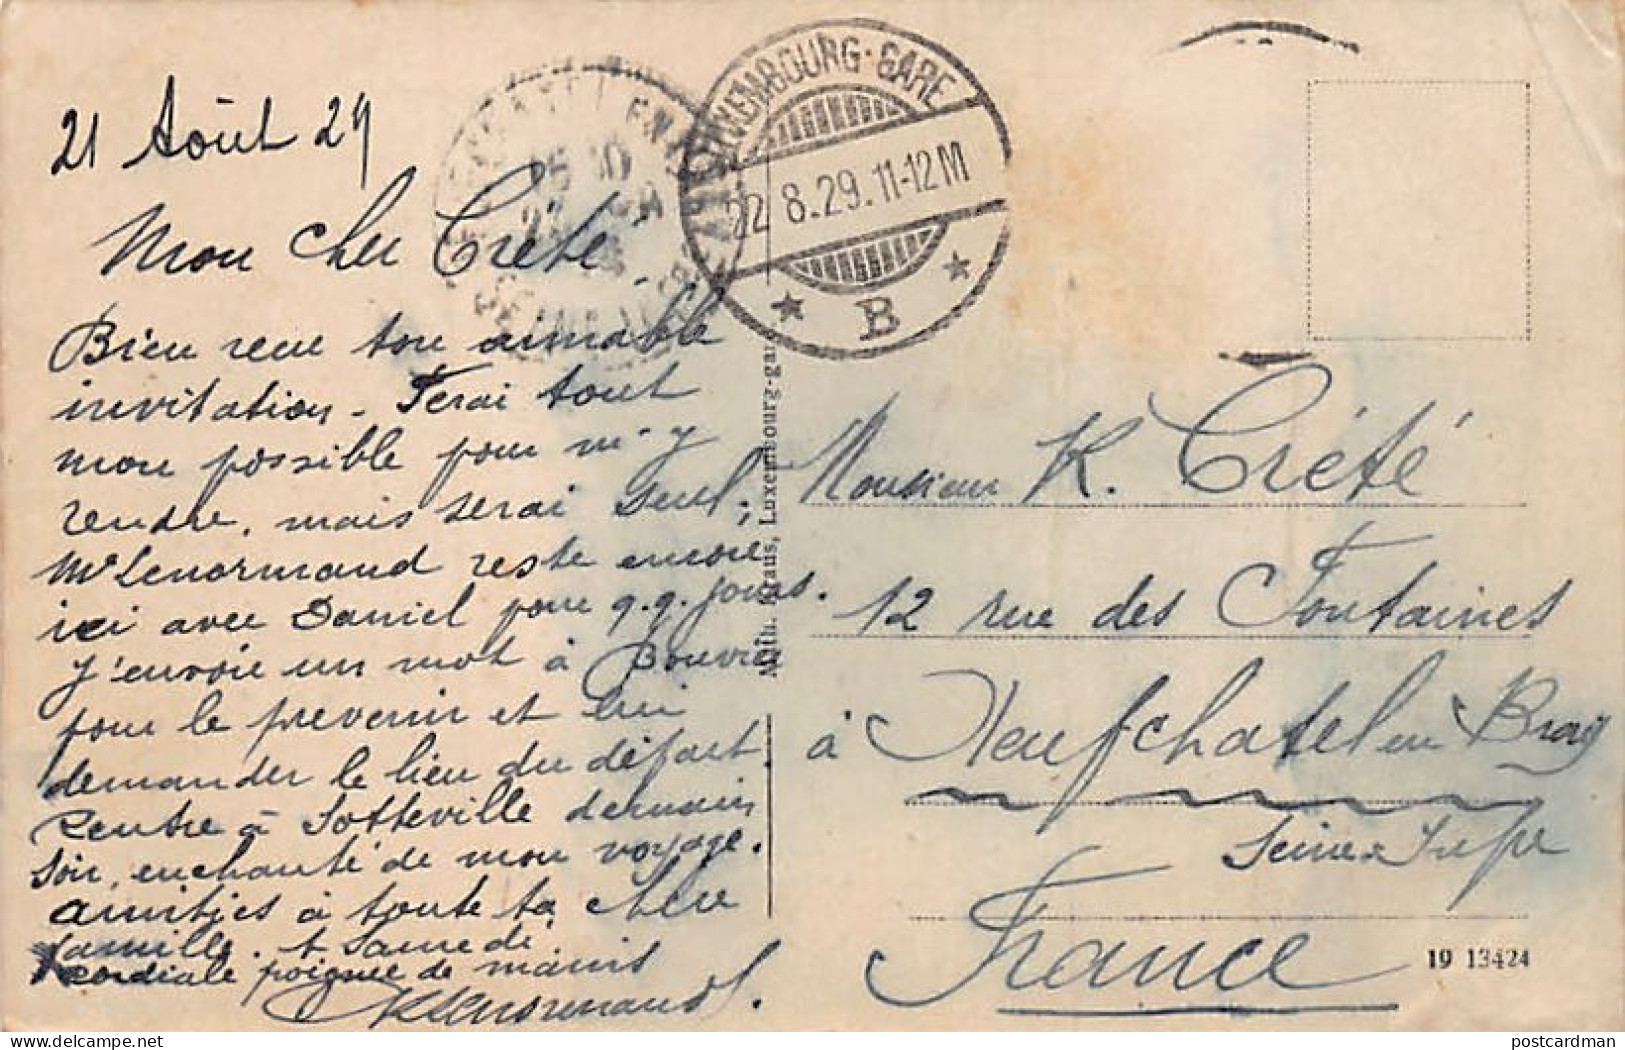 21 Août 29
Mon cher Crété.
Bien reçu ton aimable
invitation - Ferai tout
mon possible pour m'y
rendre, mais serai seul;
Mr Lenormand reste encore
ici avec Daniel pour q.q. jours.
J'envoie un mot à Bouvier
pour le prevenir et lui
demander le lieu du départ.
Rentre à Sotteville demain
soir, enchanté de mon voyage.
Amitiés à toute ta chère
famille. A Samedi.
cordiale poignée de mains
Lenormand.
LUXEMBOURG-GARE
22.8.29.11-12M
B
Math. Kraus, Luxembourg-gare
Monsieur K. Crété
12 rue des Fontaines
à Neufchatel en Bray
Seine Infre
France
19 13424
postcardman